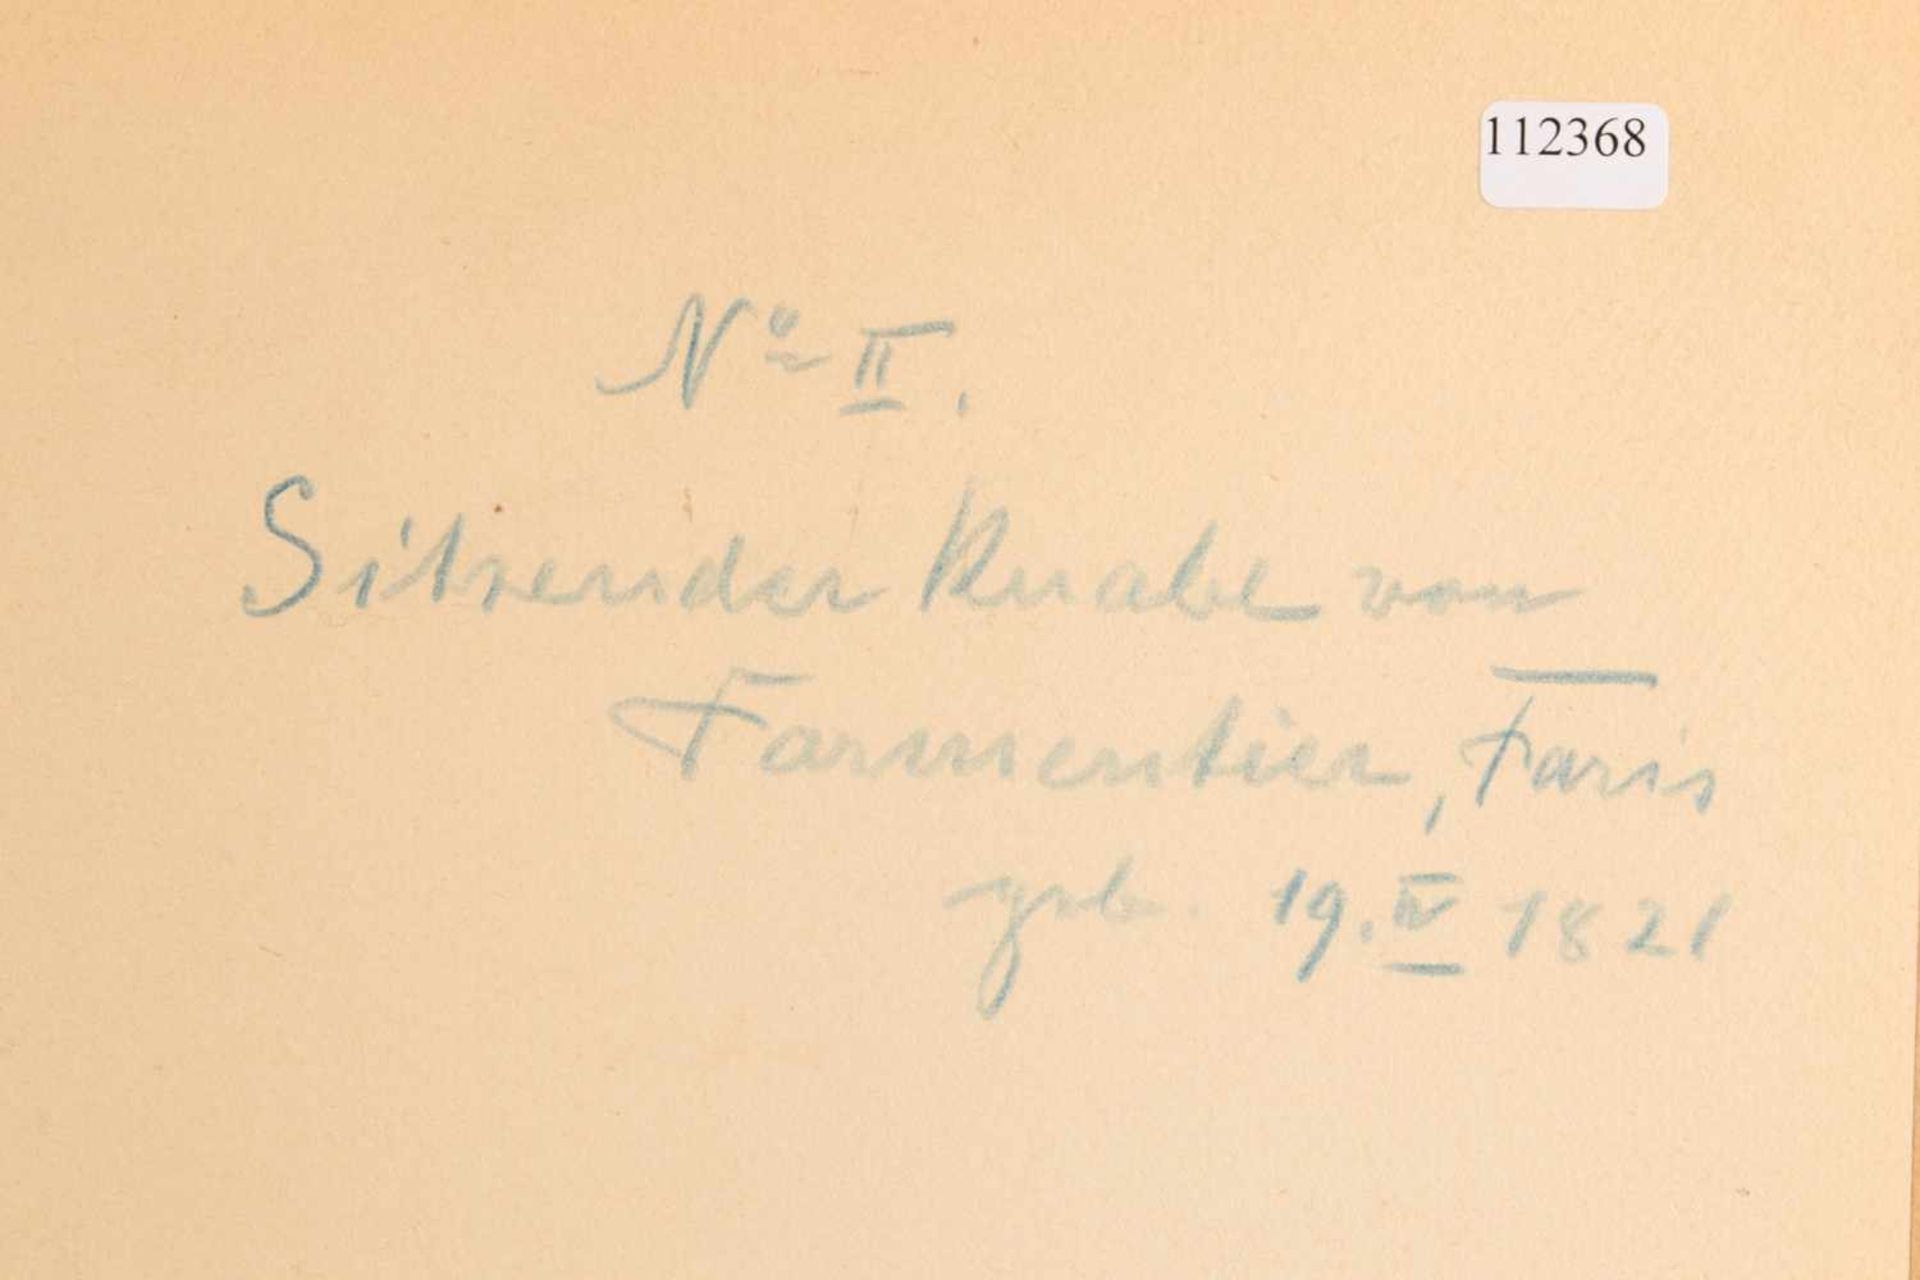 112368
No II.
Sitzender Knabe von
Parmentier, Paris
geb. 19. IV 1821